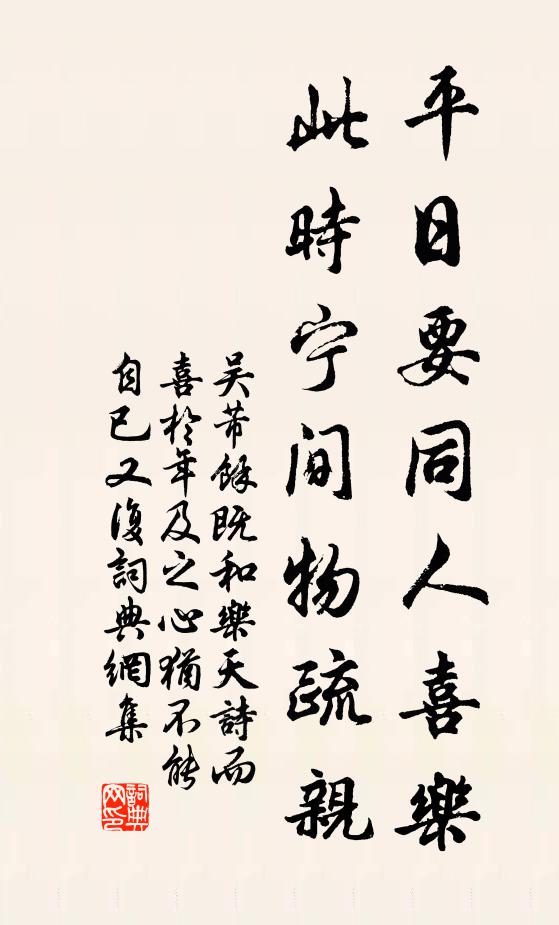 平日要同人喜樂
此時宁間物疏親
吴芾餘既和樂天詩而
喜於年及之心猶不能
自已又復詞典網集
詞典網印